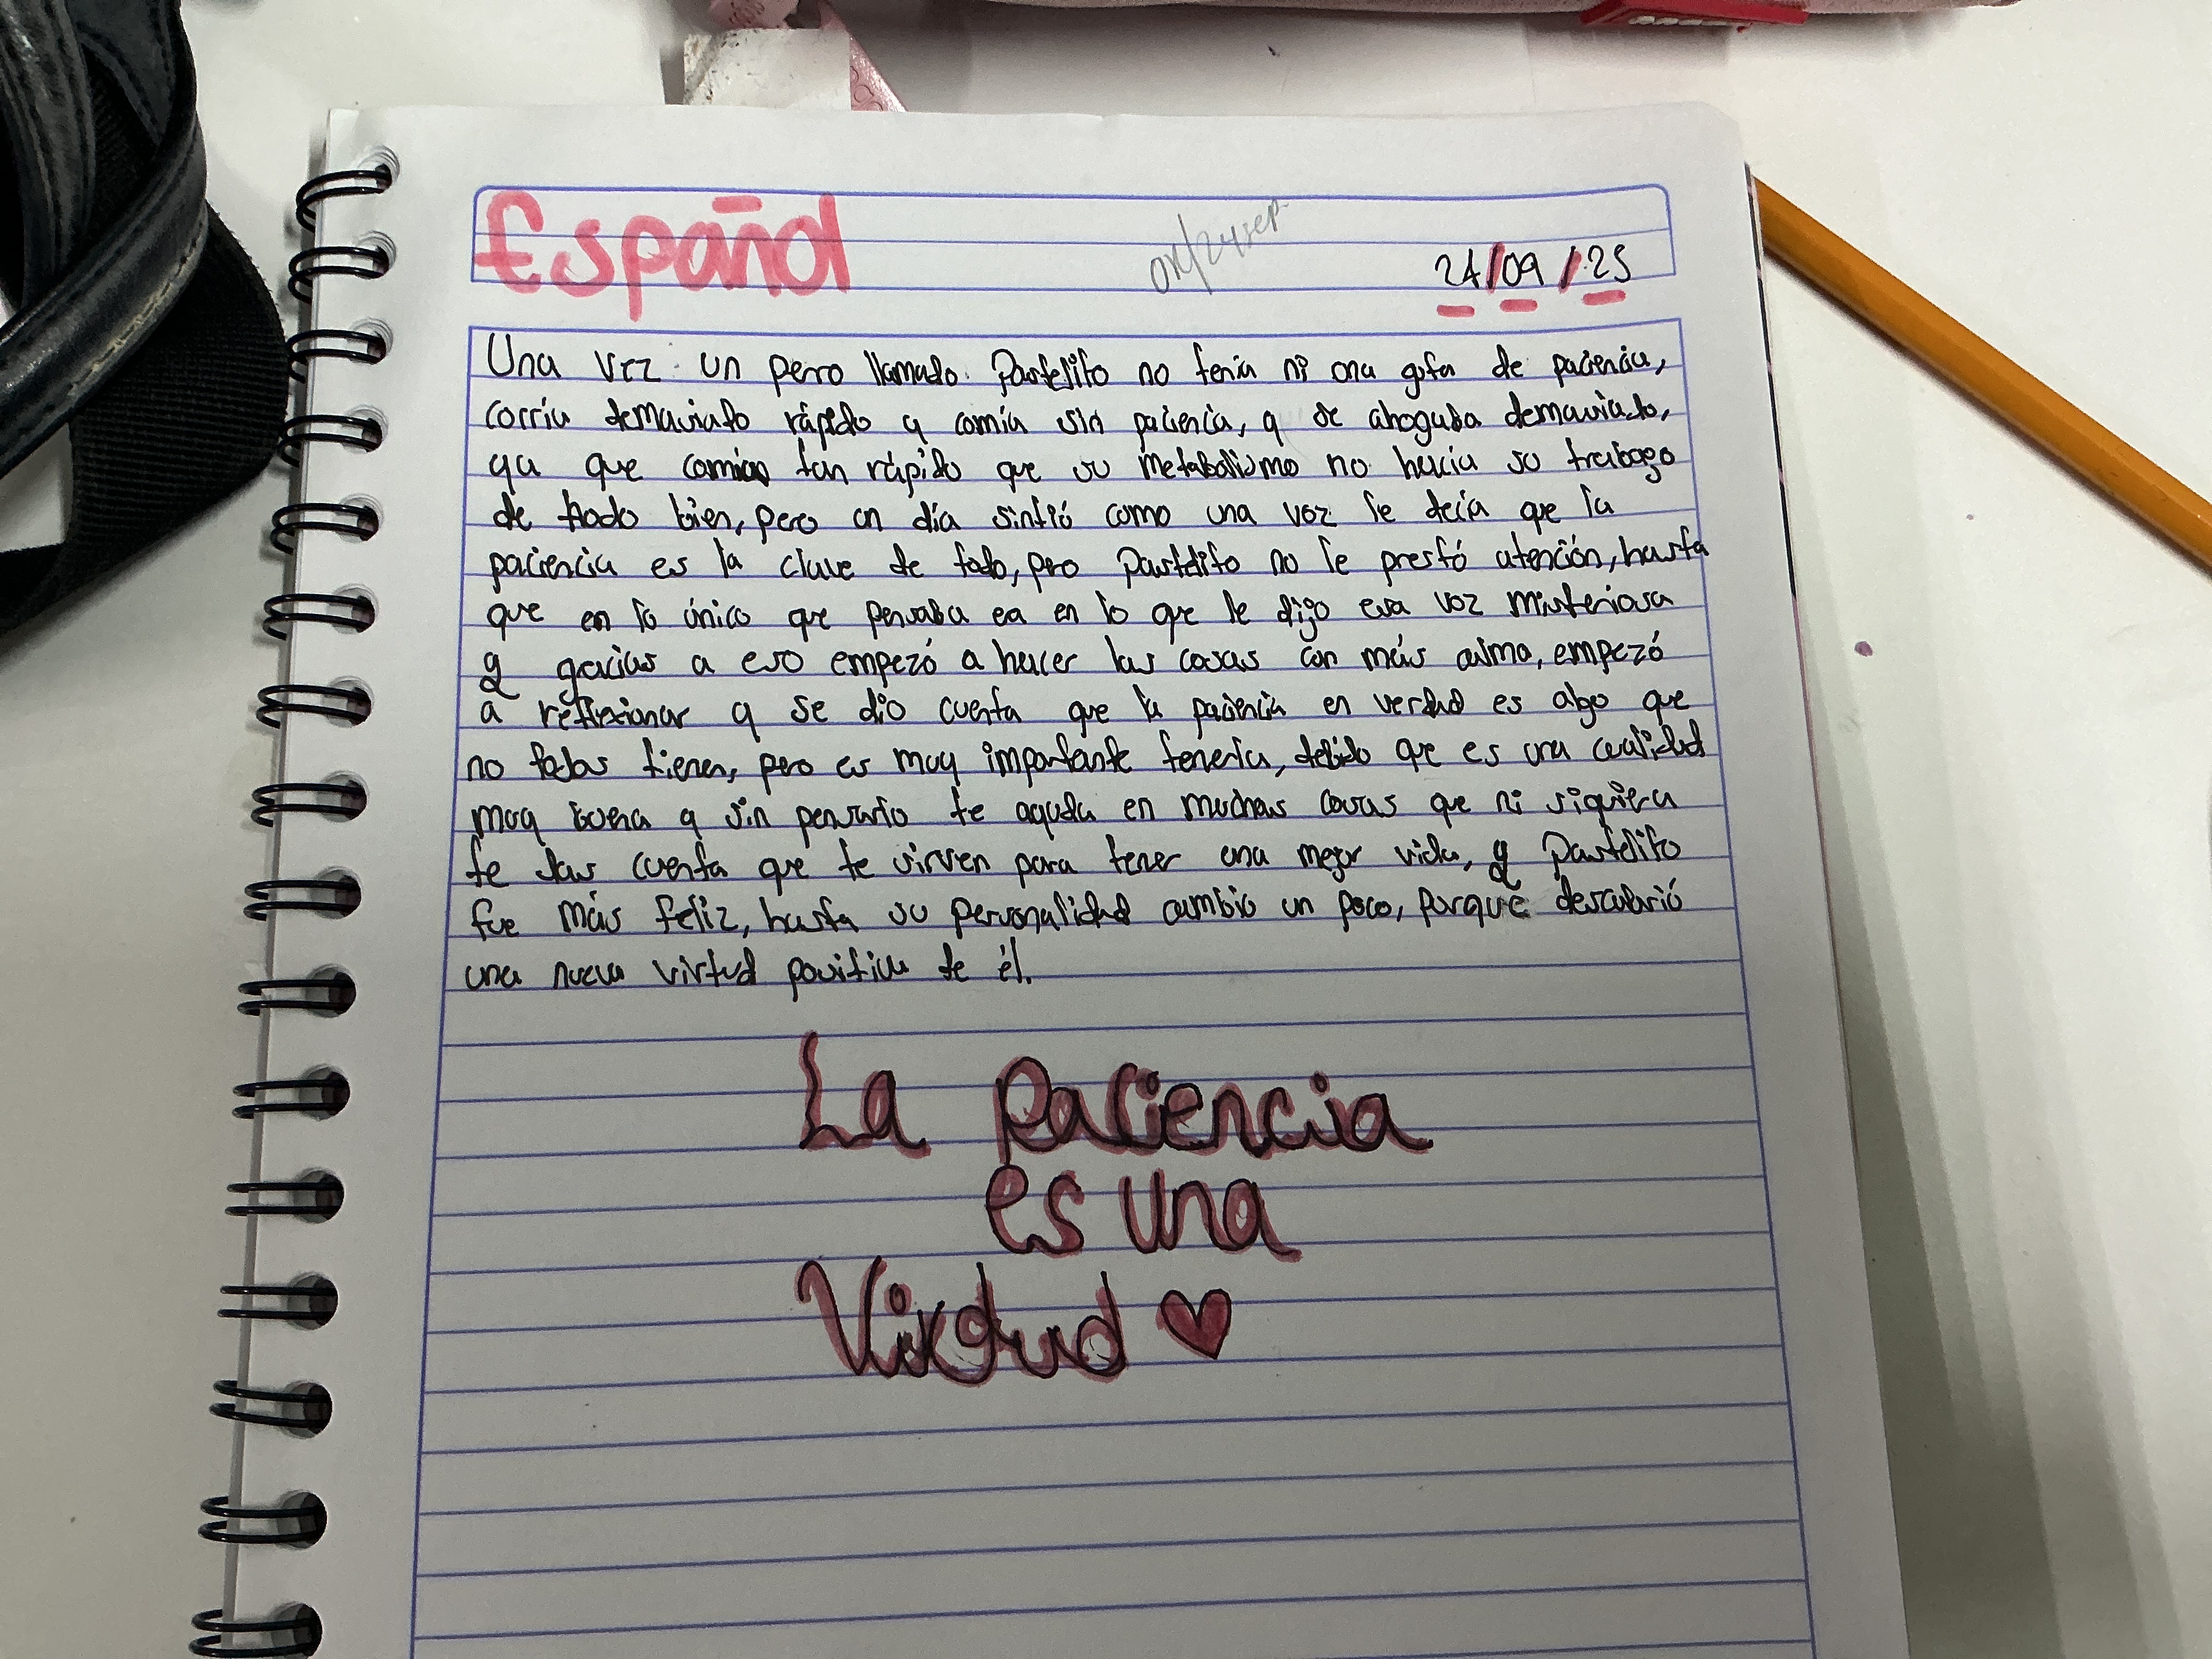 Español
OK/24sep.
24/09/25
Una vez un perro llamado Pastelito no tenía ni una gota de paciencia,
corría demasiado rápido y comía sin paciencia, y se ahogaba demasiado,
ya que comía tan rápido que su metabolismo no hacía su trabajo
de todo bien, pero un día sintió como una voz le decía que la
paciencia es la clave de todo, pero Pastelito no le prestó atención, hasta
que en lo único que pensaba ea en lo que le dijo esa voz misteriosa
y gracias a eso empezó a hacer las cosas con más calma, empezó
a reflexionar y se dio cuenta que la paciencia en verdad es algo que
no todos tienen, pero es muy importante tenerla, debido que es una cualidad
muy buena y sin pensarlo te ayuda en muchas cosas que ni siquiera
te das cuenta que te sirven para tener una mejor vida, y Pastelito
fue más feliz, hasta su personalidad cambio un poco, porque descubrió
una nueva virtud positiva de él.
La paciencia
es una
Virtud